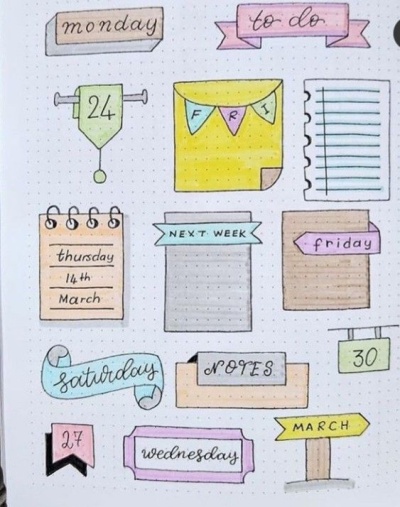 monday
to do
24
FRI
thursday
14th
March
NEXT WEEK
friday
30
saturday
NOTES
27
wednesday
MARCH